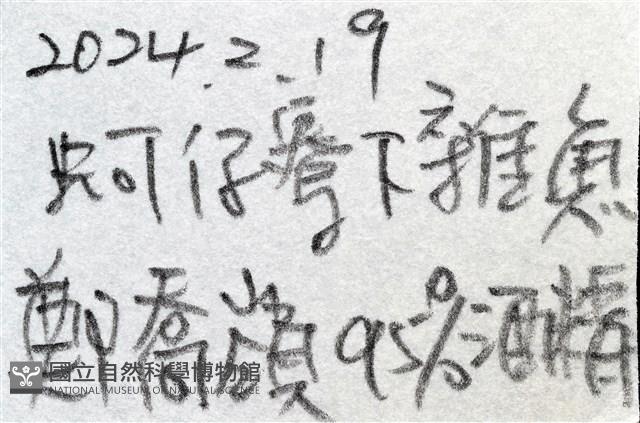 2024.2.19
蚵仔寮下雜魚
鄭喬嶺 95%酒精
國立自然科學博物館
NATIONAL MUSEUM OF NATURAL SCIENCE